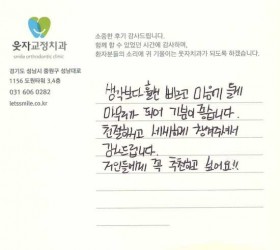 웃자교정치과
smile orthodontic clinic
경기도 성남시 중원구 성남대로
1156 도원타워 3,4층
031 606 0282
letssmile.co.kr
소중한 후기 감사드립니다.
함께 할 수 있었던 시간에 감사하며,
환자분들의 소리에 귀 기울이는 웃자치과가 되도록 하겠습니다.
생각보다 훨씬 빠르고 마음에 들게
마무리가 되어 기분이 좋습니다.
친절하고 세세하게 챙겨주셔서
감사드립니다.
지인들에게 꼭 추천하고 싶어요!!